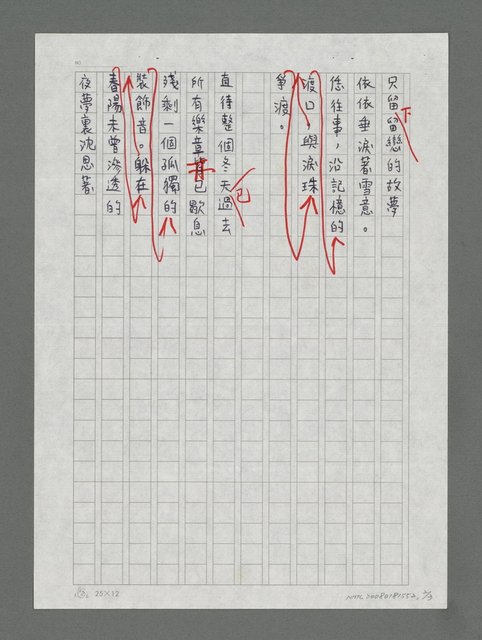 只留下留戀的故夢
依依垂淚著雪意。
恁往事，沿記憶的
渡口，與淚珠
爭渡。
直待整個冬天已過去
所有樂章皆已歇息
殘剩一個孤獨的
裝飾音。躲在
春陽未曾滲透的
夜夢裏沈思著
25×12